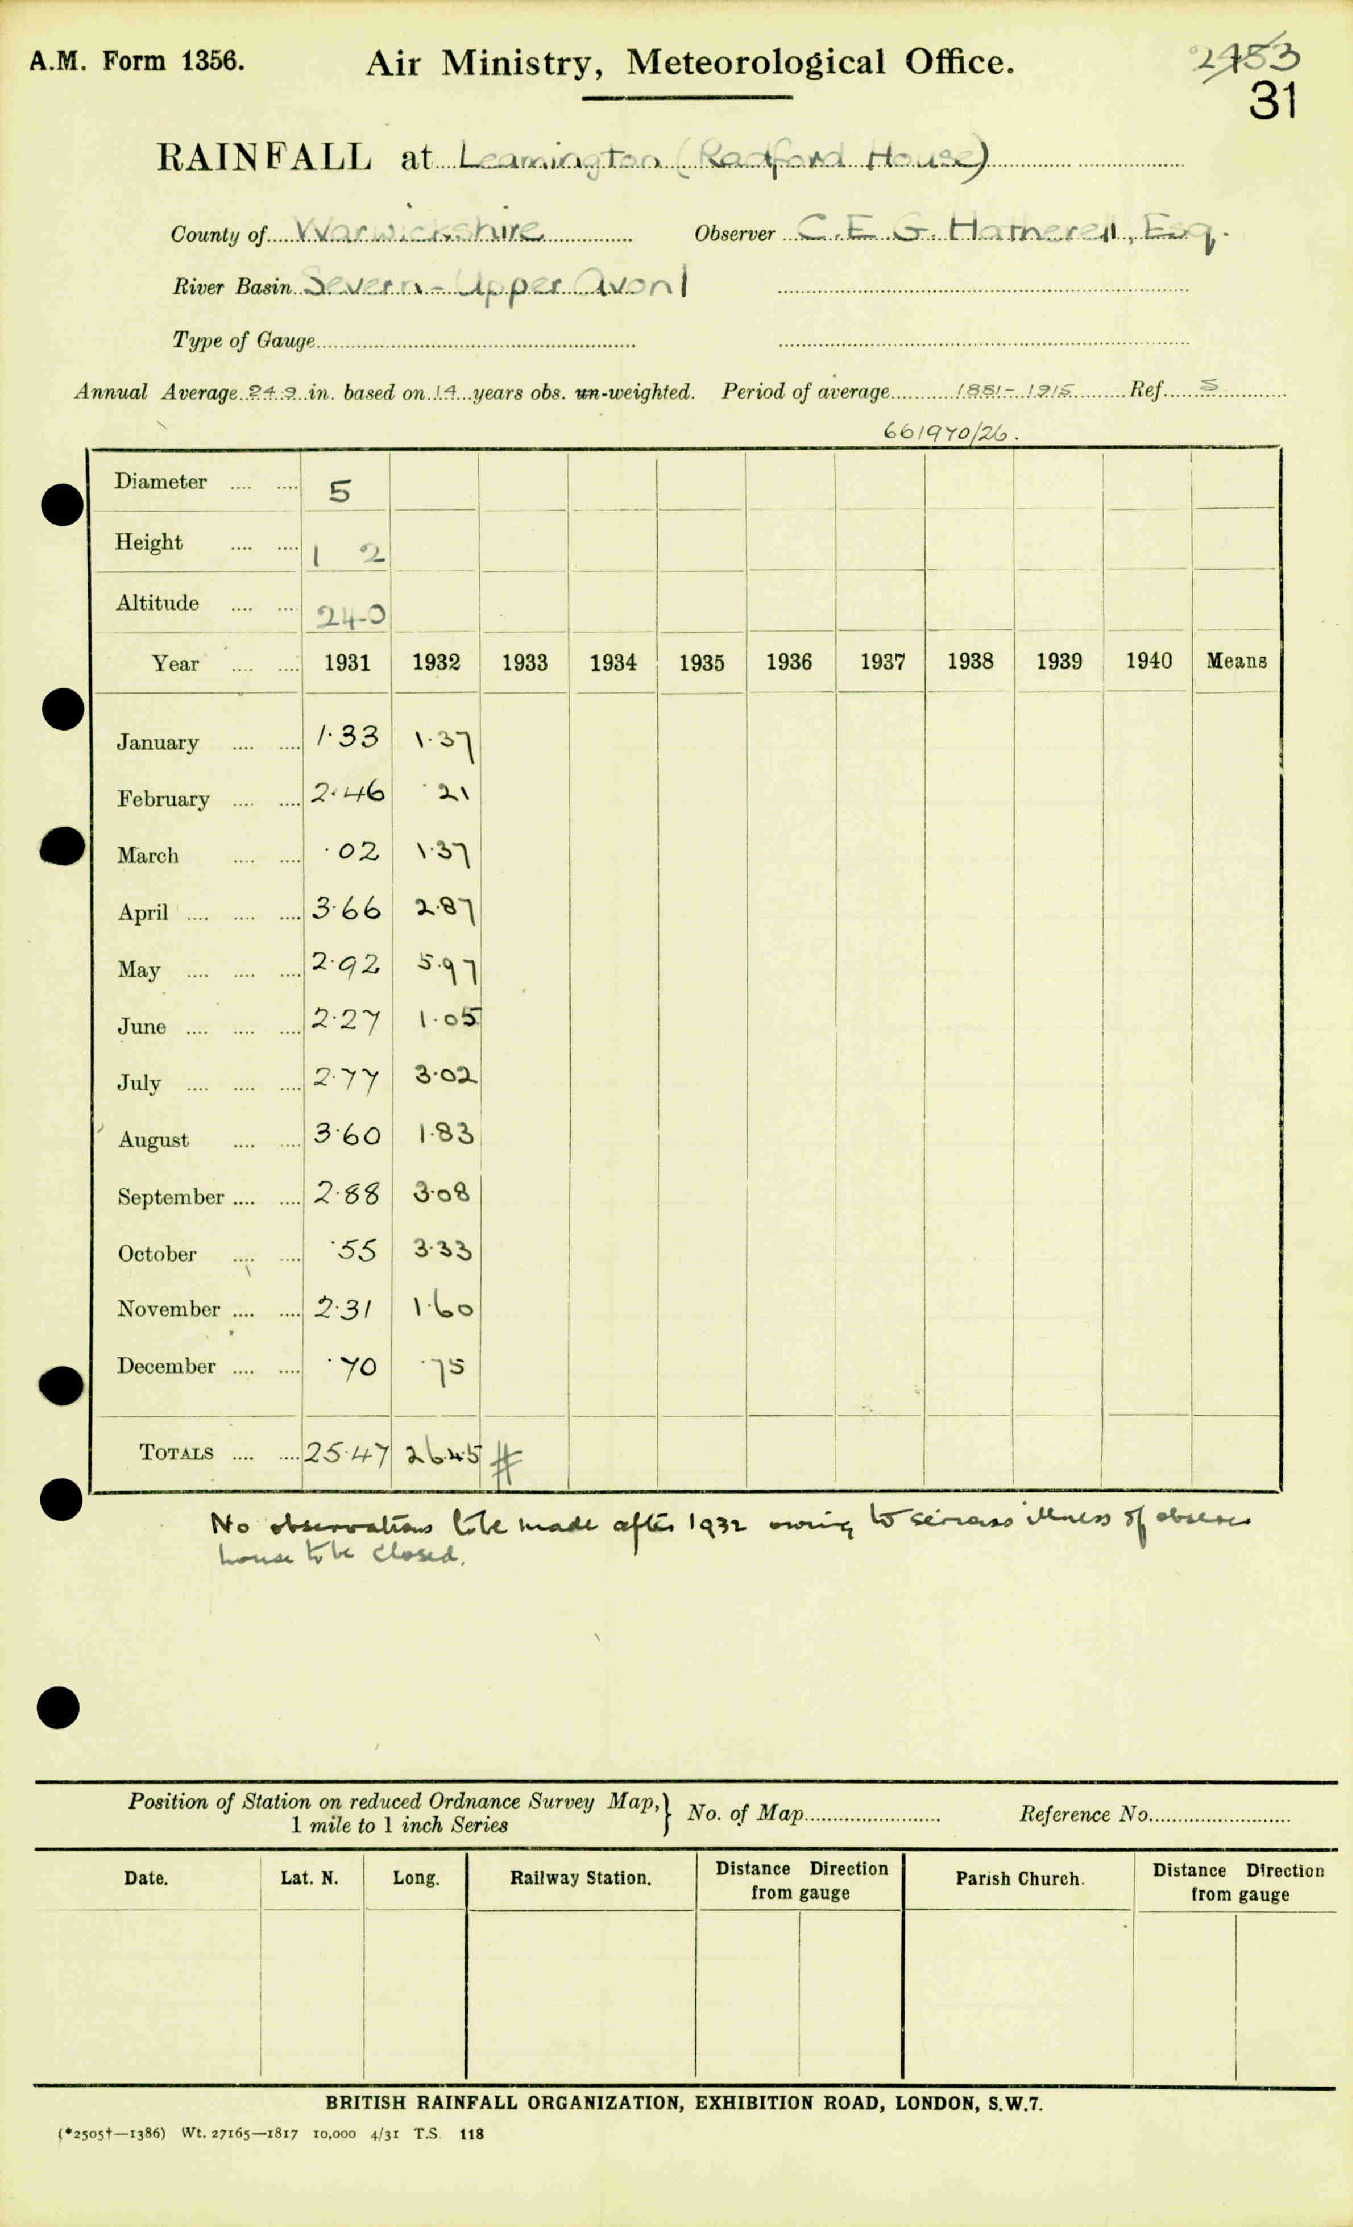 A.M. Form 1356. Air Ministry, Meteorological Office. 2453
31
RAINFALL at Leamington (Radford House)
County of Warwickshire Observer C.E.G. Hatherell, Esq.
River Basin Severn - Upper Avon 1
Type of Gauge
Annual Average 24.9 in. based on 14 years obs. un-weighted. Period of average 1881-1915 Ref. S
661970/26.
Diameter .... .... 5
Height .... .... 1 2
Altitude .... .... 240
Year .... .... 1931 1932 1933 1934 1935 1936 1937 1938 1939 1940 Means
January .... .... 1.33 1.37
February .... .... 2.46 .21
March .... .... .02 1.37
April .... .... .... 3.66 2.87
May .... .... .... 2.92 5.97
June .... .... .... 2.27 1.05
July .... .... .... 2.77 3.02
August .... .... 3.60 1.83
September .... .... 2.88 3.08
October .... .... .55 3.33
November .... .... 2.31 1.60
December .... .... .70 .75
TOTALS .... .... 25.47 26.45 #
No observations to be made after 1932 owing to serious illness of observer
house to be closed.
Position of Station on reduced Ordnance Survey Map, } No. of Map Reference No.
1 mile to 1 inch Series
Date. Lat. N. Long. Railway Station. Distance Direction Parish Church. Distance Direction
from gauge from gauge
BRITISH RAINFALL ORGANIZATION, EXHIBITION ROAD, LONDON, S.W.7.
(*2505†—1386) Wt. 27165—1817 10,000 4/31 T.S. 118